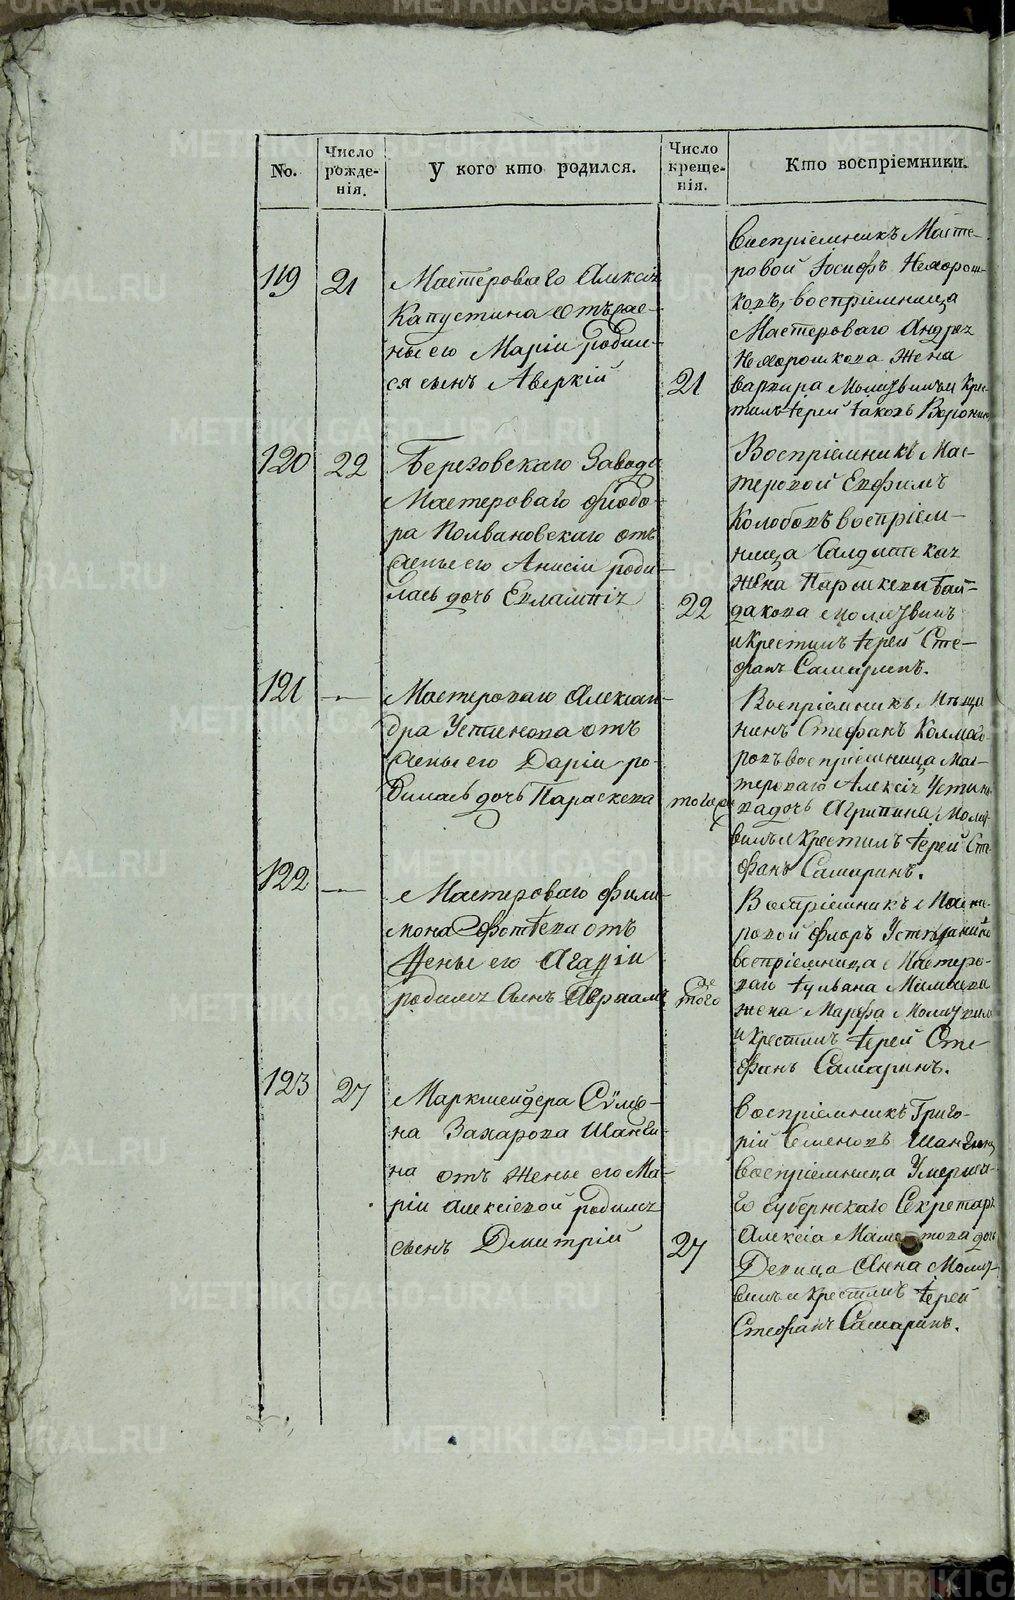 No.
Число рожде-нія.
У кого кто родился.
Число креще-нія.
Кто воспріемники.
119
21
Мастероваго Алексѣя
Капустина отъ же-
ны его Маріи родил-
ся сынъ Аверкій
21
Воспріемникъ Масте-
ровой Іосифъ Нехорош-
ковъ, воспріемница
Мастероваго Андрея
Нехорошкова жена
Варвара Молитвилъ и Крес-
тилъ Іерей Іаковъ Воронин
120
22
Березовскаго Завода
Мастероваго Ѳеодо-
ра Поливановскаго отъ
жены его Анисіи роди-
лась дочь Евлампія
22
Воспріемникъ Мас-
теровой Евфимъ
Колобовъ воспріем-
ница Салдатская
жена
дакова молитвилъ
и крестилъ Іерей Сте-
фанъ Самаринъ.
121
—
Мастероваго Алексан-
дра Устинова отъ
жены его Даріи ро-
дилась дочь Параскева
тогоже
Воспріемникъ Мѣща
нинъ Стефанъ Колмого-
ровъ воспріемница Мас-
тероваго Алексія Устин
ва дочь Агрипина молит
вилъ и крестилъ Іерей Сте
фанъ Самаринъ.
122
—
Мастероваго Фили-
мона Фотѣева отъ
жены его Агапіи
родился Сынъ Авраамъ
того
же
Воспріемникъ Масте-
ровой Флоръ
воспріемница Мастеро-
ваго
жена Марфа Молитвилъ
и крестилъ Іерей Сте
фанъ Самаринъ.
123
27
Маркшейдера Сѷмео-
на Захарова Шанги-
на отъ жены его Ма-
ріи Алексіевой родился
сынъ Дмитрій
27
воспріемникъ Григо-
рій Семеновъ Шангинъ
воспріемница Умерша-
го губернскаго Секретаря
Алексіа дочь
Девица Анна Молит-
вилъ и крестилъ Іерей
Стефанъ Самаринъ.
METRIKI.GASO-URAL.RU